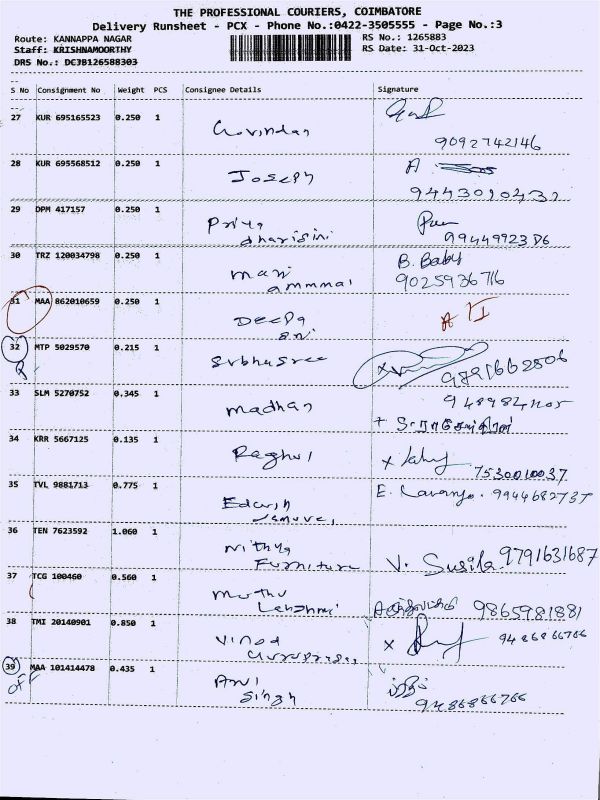 THE PROFESSIONAL COURIERS, COIMBATORE
Delivery Runsheet - PCX - Phone No.:0422-3505555 - Page No.:3
Route: KANNAPPA NAGAR RS No.: 1265883
Staff: KRISHNAMOORTHY RS Date: 31-Oct-2023
DRS No.: DCJB126588303
S No Consignment No Weight PCS Consignee Details Signature
27 KUR 695165523 0.250 1
Govindan 9092742146
28 KUR 695568512 0.250 1 A
Joseph
29 DPM 417157 0.250 1
Priya
dharisini
30 TRZ 120034798 0.250 1 B. Baby
mari 9025936716
ammmal
31 MAA 862010659 0.250 1
Deepa
32 MTP 5029570 0.215 1
Subhasree
33 SLM 5270752 0.345 1
madhan
34 KRR 5667125 0.135 1
Raghul 7530010037
35 TVL 9881713 0.775 1 E. Lavanya. 9944682737
Edwin
Samuvel
36 TEN 7623592 1.060 1
Nithya
Furniture V. Susila 9791631687
37 TCG 100460 0.560 1
Muthu
Lakshmi 9865981881
38 TMI 20140901 0.850 1
Vinod 9486866766
39 MAA 101414478 0.435 1
off Arvi
Singh 9486866766